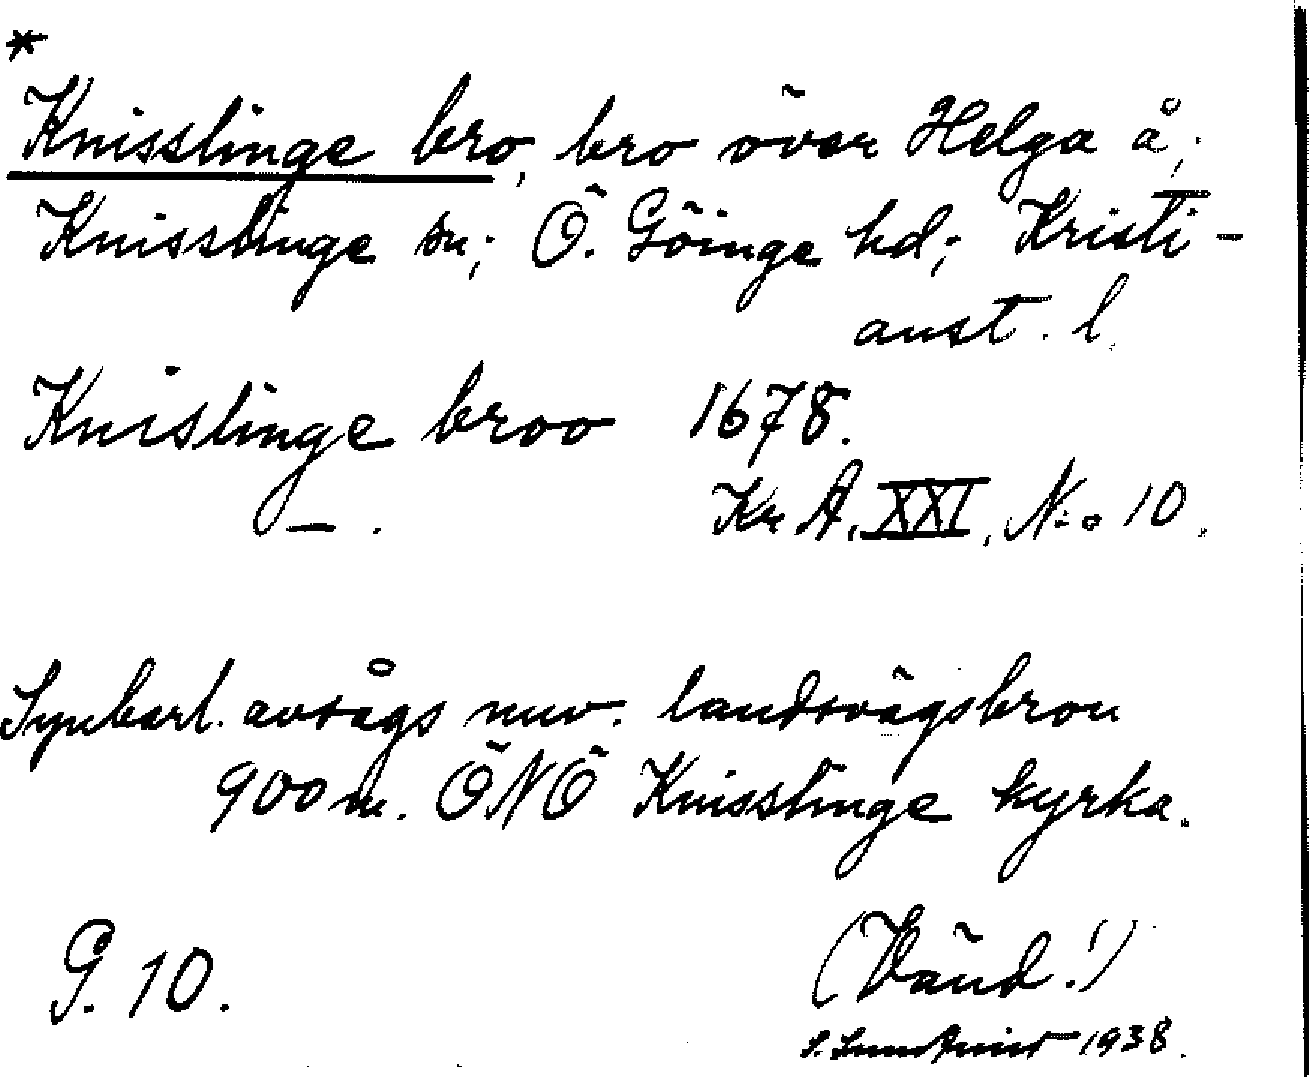 *
Knisslinge bro, bro över Helga å;
Knisslinge sn; Ö. Göinge hd; Kristi-
anst. l.
Knislinge broo 1678.
— . Kr A. XXI, N:o 10.
Synbarl. avsågs nuv. landsvägsbron
900 m. ÖNÖ Knisslinge kyrka.
G. 10.
(Vänd!)
1938.